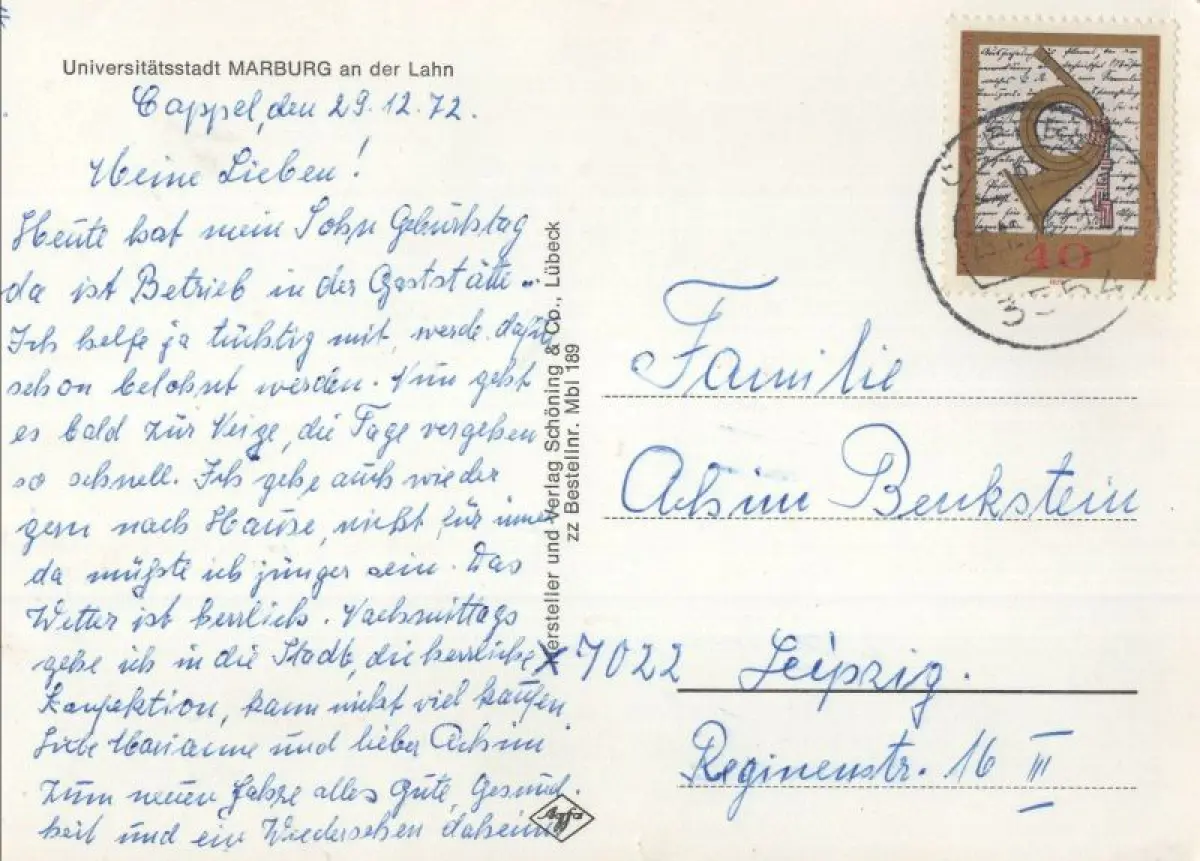 Universitätsstadt MARBURG an der Lahn
Cappel, den 29.12.72.
Meine Lieben!
Heute hat mein Sohn Geburtstag
da ist Betrieb in der Gaststätte..
Ich helfe ja tüchtig mit, werde dafür
schon belohnt werden. Nun geht
es bald zur Neige, die Tage vergehen
so schnell. Ich gehe auch wieder
gern nach Hause, nicht für immer
da müßte ich jünger sein. Das
Wetter ist herrlich. Nachmittags
gehe ich in die Stadt, die herrliche
Konfektion, kann nicht viel kaufen.
Liebe Marianne und lieber Achim
zum neuen Jahre alles Gute, Gesund-
heit und ein Wiedersehen daheim
Hersteller und Verlag Schöning & Co., Lübeck
zz Bestellnr. Mbl 189
40
3554
Familie
Achim Benkstein
7022 Leipzig.
Reginenstr. 16 III